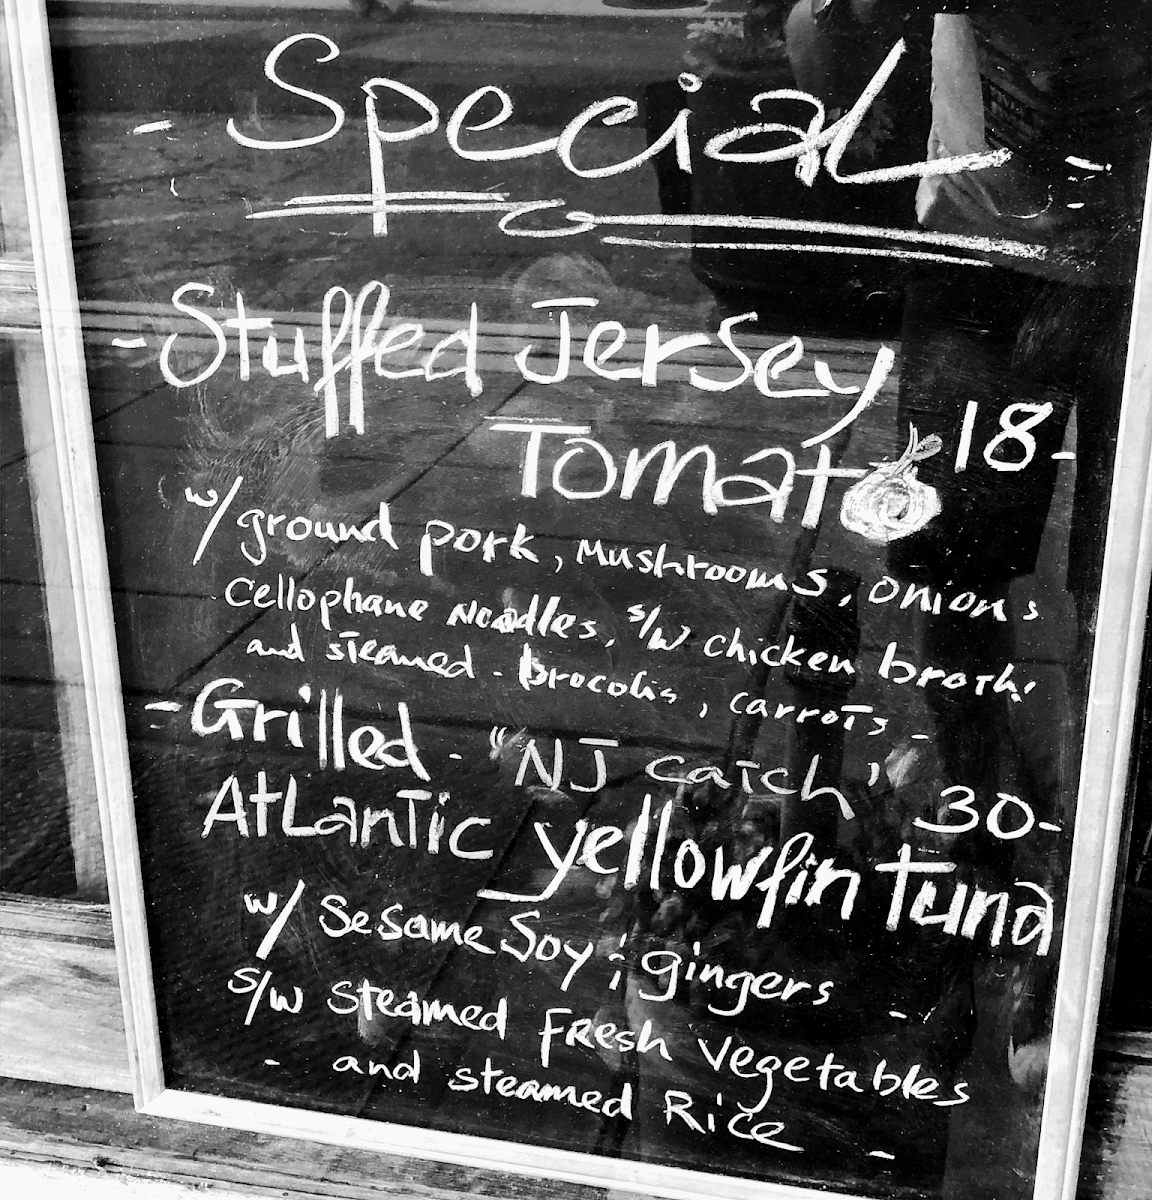 - Special -
- Stuffed Jersey
Tomato 18-
w/ ground pork, Mushrooms, onions
Cellophane Noodles, s/w chicken broth!
and steamed - brocolis, carrots -
- Grilled - "NJ catch"
Atlantic yellowfin tuna 30-
w/ Sesame Soy ; gingers -
s/w steamed fresh vegetables
- and steamed Rice -